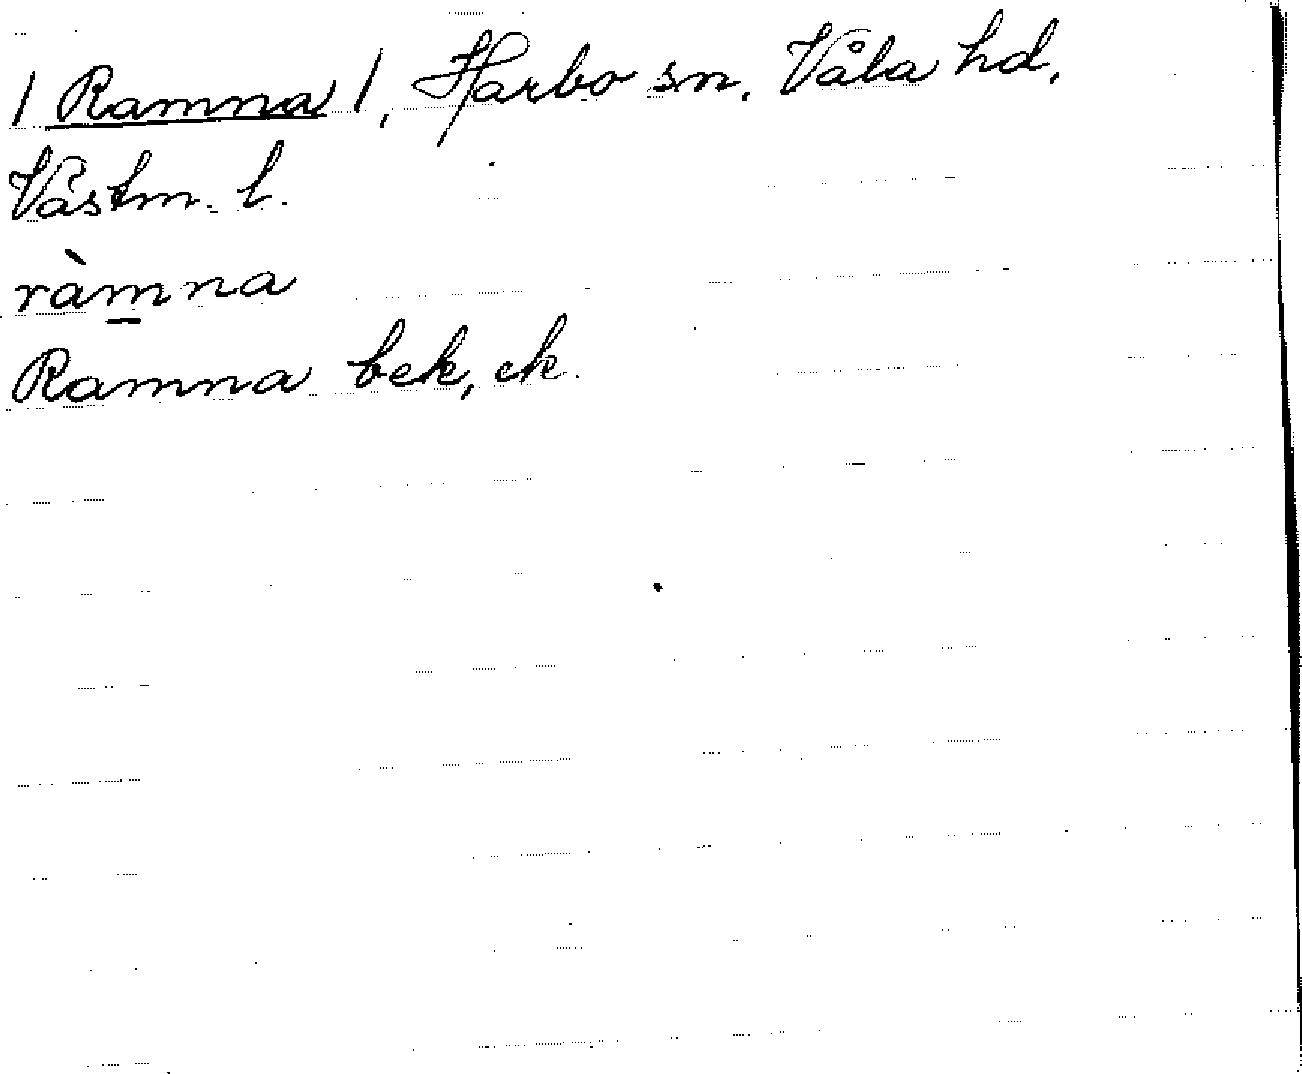 / Ramna /, Harbo sn. Våla hd,
Västm. l.
ràmna
Ramna bek, ek.